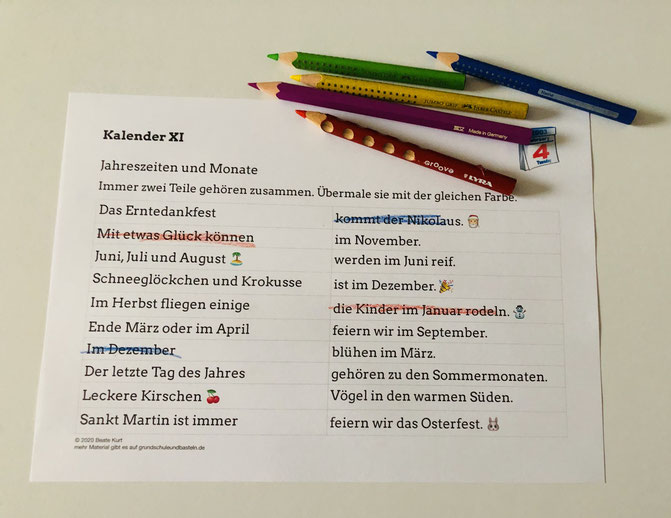 Kalender XI
JUMBO GRIP FABER-CASTELL
Made in Germany
GROOVE LYRA
4
Jahreszeiten und Monate
Immer zwei Teile gehören zusammen. Übermale sie mit der gleichen Farbe.
Das Erntedankfest kommt der Nikolaus. 🎅
Mit etwas Glück können im November.
Juni, Juli und August 🏝️ werden im Juni reif.
Schneeglöckchen und Krokusse ist im Dezember. 🎉
Im Herbst fliegen einige die Kinder im Januar rodeln. ⛄
Ende März oder im April feiern wir im September.
Im Dezember blühen im März.
Der letzte Tag des Jahres gehören zu den Sommermonaten.
Leckere Kirschen 🍒 Vögel in den warmen Süden.
Sankt Martin ist immer feiern wir das Osterfest. 🐰
© 2020 Beate Kurt
mehr Material gibt es auf grundschuleundbasteln.de